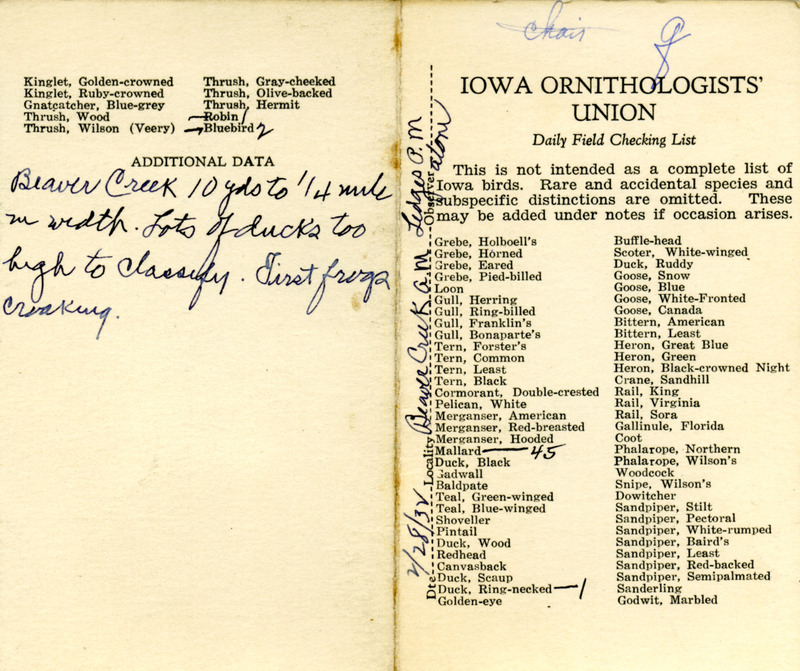 Kinglet, Golden-crowned
Kinglet, Ruby-crowned
Gnatcatcher, Blue-grey
Thrush, Wood
Thrush, Wilson (Veery)
Thrush, Gray-cheeked
Thrush, Olive-backed
Thrush, Hermit
Robin 1
Bluebird 2
ADDITIONAL DATA
Beaver Creek 10 yds to 1/4 mile
in width. Lots of ducks too
high to classify. First frogs
croaking.
chair
IOWA ORNITHOLOGISTS'
UNION
Daily Field Checking List
This is not intended as a complete list of
Iowa birds. Rare and accidental species and
subspecific distinctions are omitted. These
may be added under notes if occasion arises.
Dte 2/28/32 Locality Beaver Creek a.m Ledges P.M Observer alone
Grebe, Holboell's
Grebe, Horned
Grebe, Eared
Grebe, Pied-billed
Loon
Gull, Herring
Gull, Ring-billed
Gull, Franklin's
Gull, Bonaparte's
Tern, Forster's
Tern, Common
Tern, Least
Tern, Black
Cormorant, Double-crested
Pelican, White
Merganser, American
Merganser, Red-breasted
Merganser, Hooded
Mallard 45
Duck, Black
Gadwall
Baldpate
Teal, Green-winged
Teal, Blue-winged
Shoveller
Pintail
Duck, Wood
Redhead
Canvasback
Duck, Scaup
Duck, Ring-necked 1
Golden-eye
Buffle-head
Scoter, White-winged
Duck, Ruddy
Goose, Snow
Goose, Blue
Goose, White-Fronted
Goose, Canada
Bittern, American
Bittern, Least
Heron, Great Blue
Heron, Green
Heron, Black-crowned Night
Crane, Sandhill
Rail, King
Rail, Virginia
Rail, Sora
Gallinule, Florida
Coot
Phalarope, Northern
Phalarope, Wilson's
Woodcock
Snipe, Wilson's
Dowitcher
Sandpiper, Stilt
Sandpiper, Pectoral
Sandpiper, White-rumped
Sandpiper, Baird's
Sandpiper, Least
Sandpiper, Red-backed
Sandpiper, Semipalmated
Sanderling
Godwit, Marbled